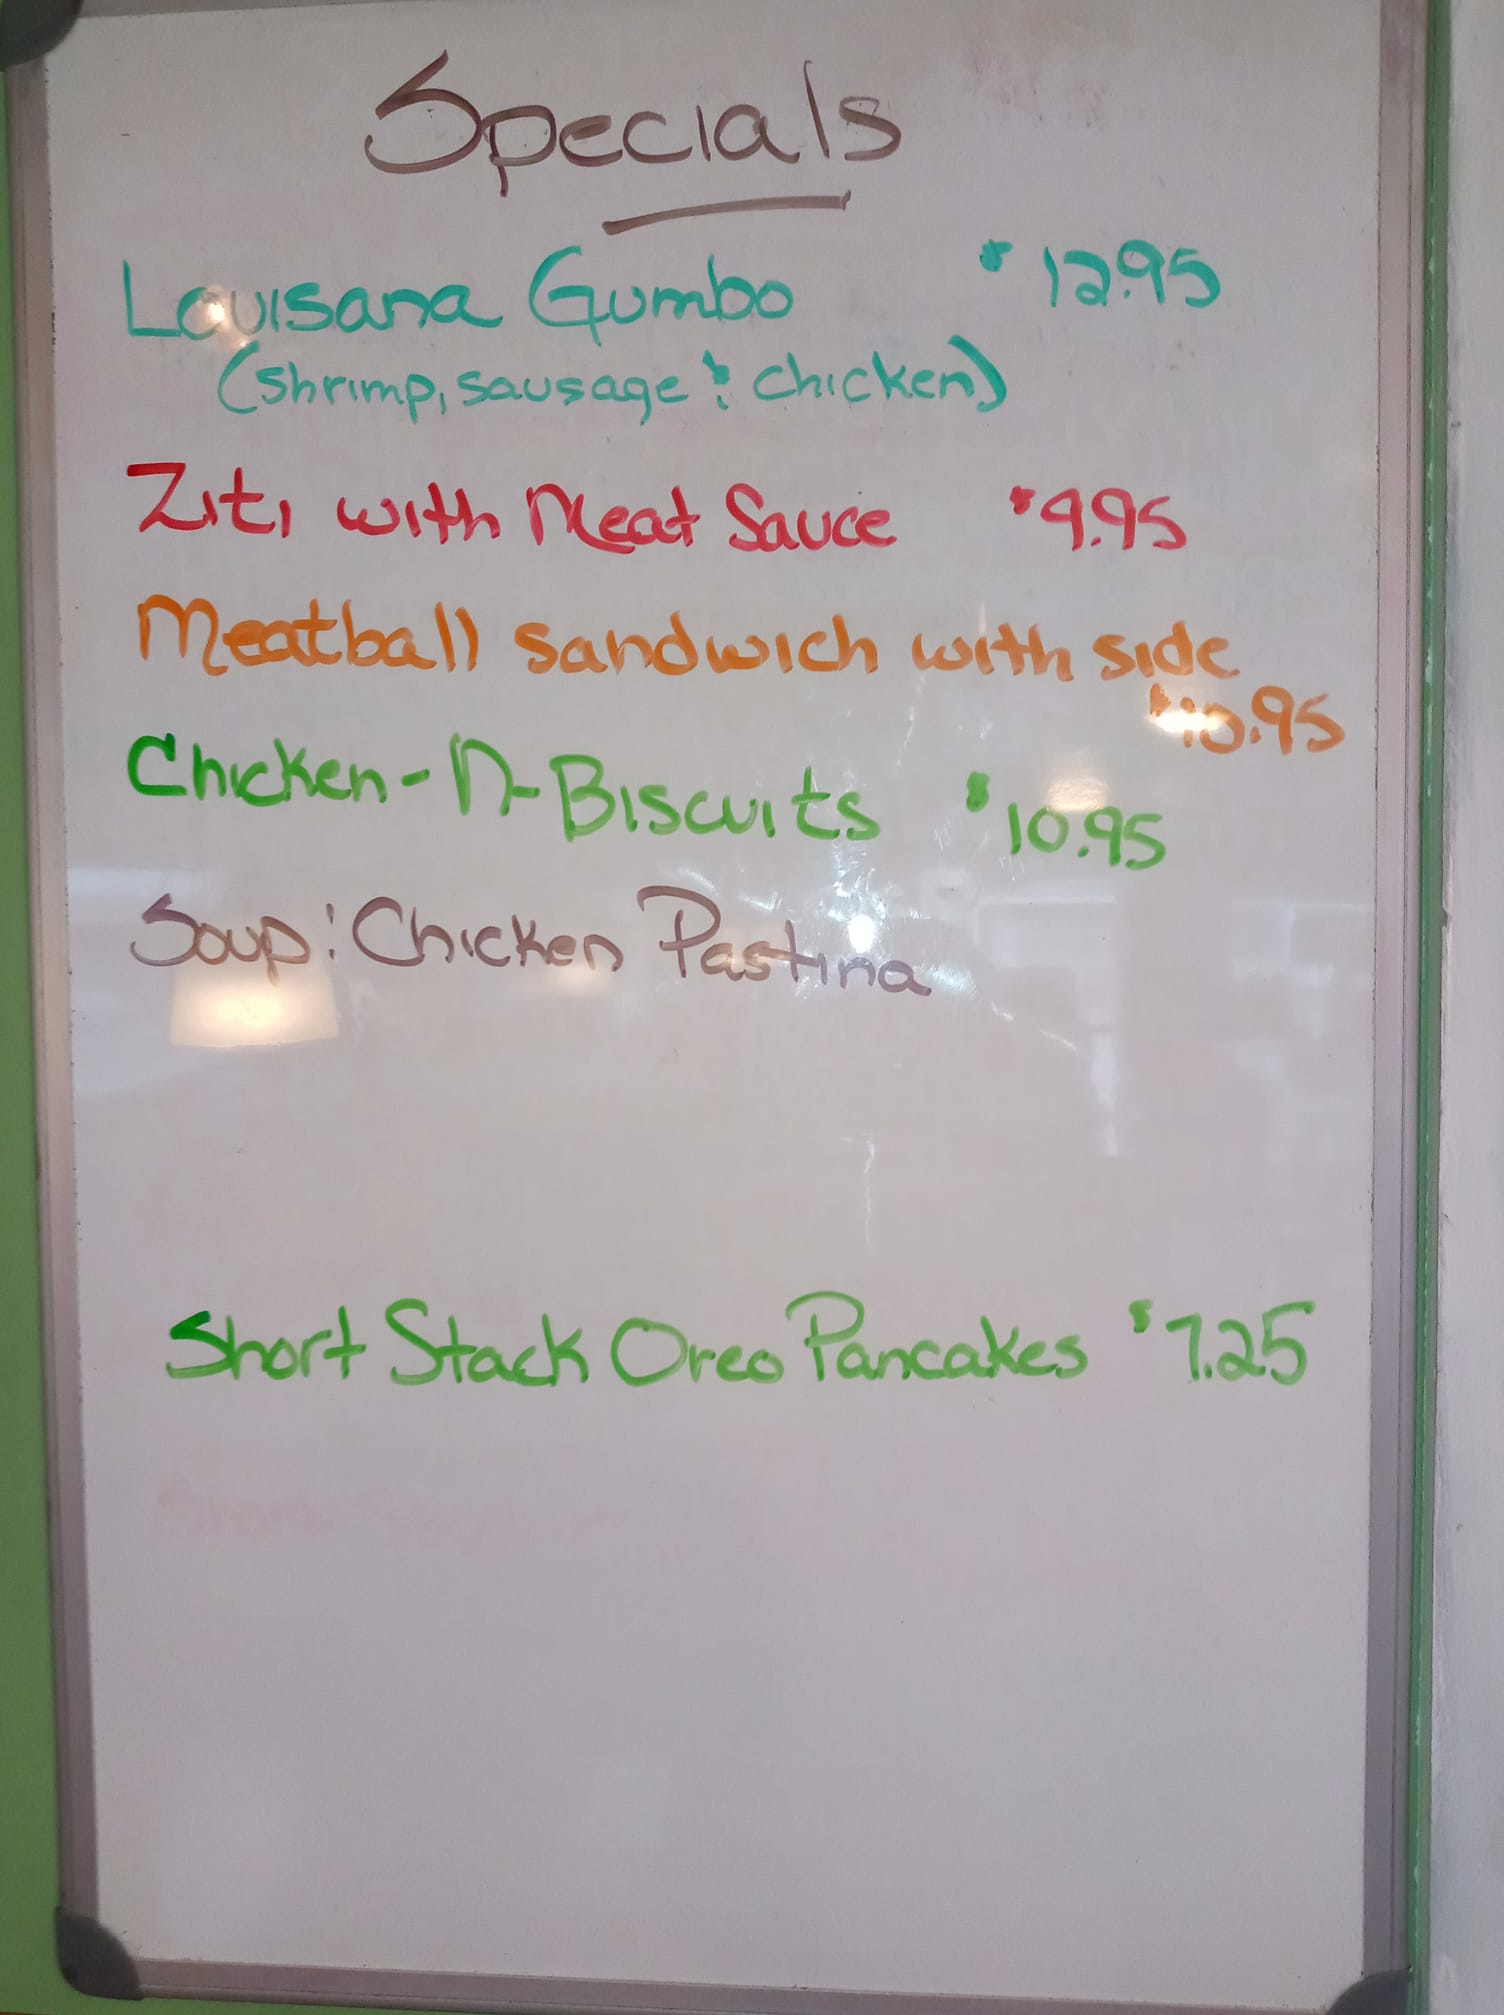 Specials
Louisana Gumbo $12.95
(shrimp, sausage & chicken)
Ziti with Meat Sauce $9.95
Meatball sandwich with side
$10.95
Chicken-N-Biscuits $10.95
Soup: Chicken Pastina
Short Stack Oreo Pancakes $7.25